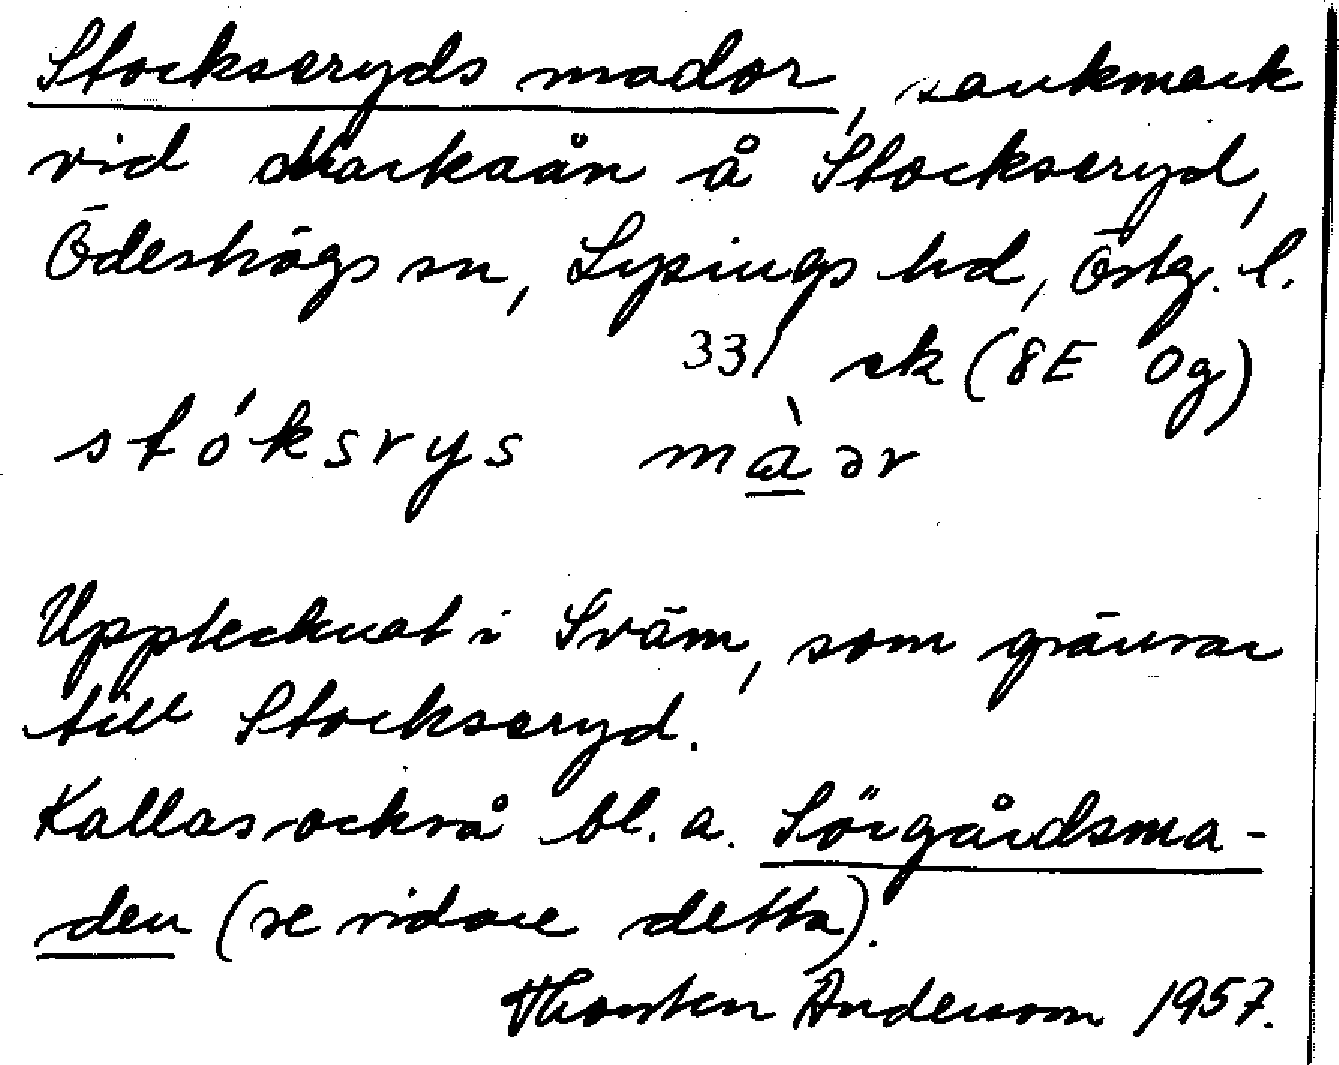 Stockseryds mador, sankmark
vid Markaån å Stockseryd,
Ödeshögs sn, Lysings hd, Östg. l.
331 ek (8E 0g)
stóksrys màər
Upptecknat i Sväm, som gränsar
till Stockseryd.
Kallas också bl. a. Sörgårdsma-
den (se vidare detta).
Thorsten Andersson 1957.